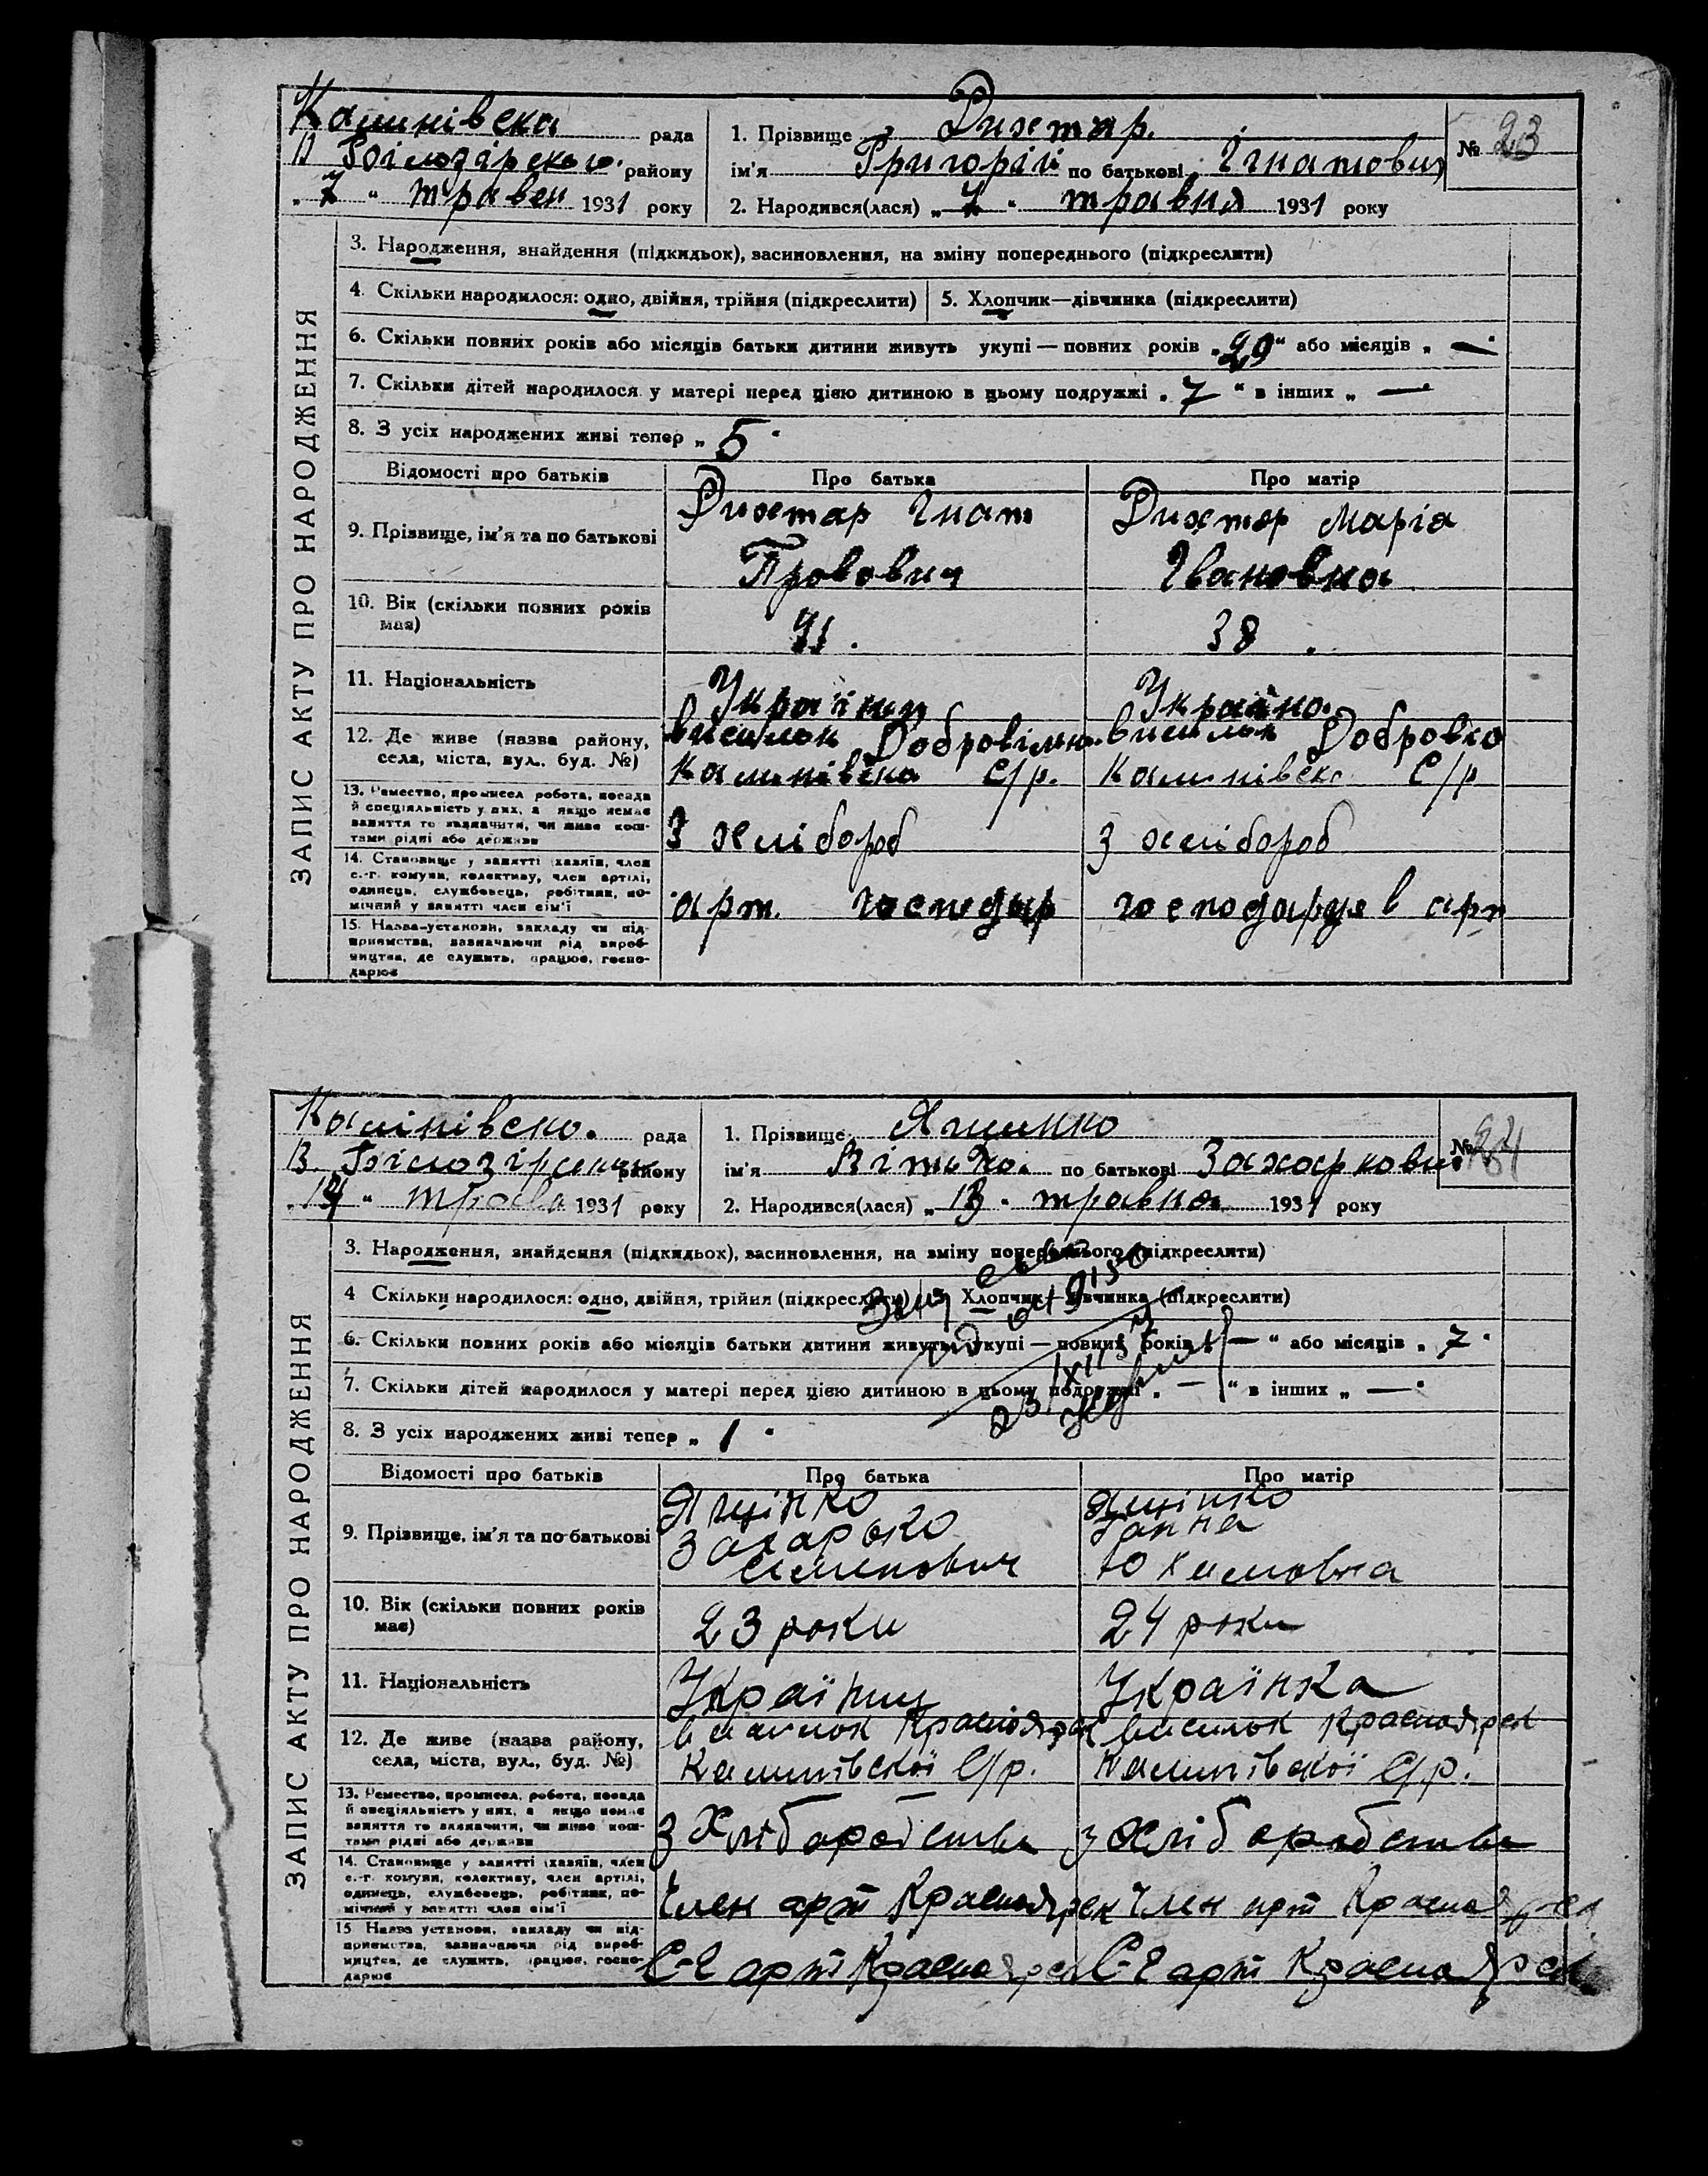 Калинівська рада
В Білозірського району
"7" травен 1931 року
1. Прізвище Дихтар.
ім'я Григорій по батькові Ігнатович
2. Народився(лася) "7" травня 1931 року
№ 23
ЗАПИС АКТУ ПРО НАРОДЖЕННЯ
3. Народження, знайдення (підкидьок), васиновлення, на зміну попереднього (підкреслити)
4. Скільки народилося: одно, двійня, трійня (підкреслити) 5. Хлопчик—дівчинка (підкреслити)
6. Скільки повних років або місяців батьки дитини живуть укупі — повних років "29" або місяців " —
7. Скільки дітей народилося у матері перед цією дитиною в цьому подружжі "7" в інших " —
8. З усіх народжених живі тепер " 5 "
Відомості про батьків Про батька Про матір
9. Прізвище, ім'я та по батькові
Дихтар Гнат
Провович
Дихтар Марія
Івановна
10. Вік (скільки повних років має)
41. 38.
11. Національність
Українец Україно.
12. Де живе (назва району,
села, міста, вул., буд. №)
виселок Добровільно.
Калинівско С/р.
виселок Добровко
Калинівско С/р
13. Ремество, промисел, робота, посада
й спеціяльність у них, а якщо немає
заняття то зазначити, чи живе кош-
тами рідні або держави
З хлібороб З хлібороб
14. Становище у занятті (хазяїн, член
с.-г. комуни, колективу, член артілі,
одинець, службовець, робітник, по-
мічний у занятті член сім'ї
арт. господар господарця в арт
15. Назва-установи, закладу чи під-
приємства, зазначаючи рід вироб-
ництва, де служить, працює, госпо-
дарює
Калінівско. рада
В. Білозірськ району
"14" трава 1931 року
1. Прізвище Ященко
ім'я по батькові Захаркович
2. Народився(лася) "13" травня 1931 року
№ 24
ЗАПИС АКТУ ПРО НАРОДЖЕННЯ
3. Народження, знайдення (підкидьох), васиновлення, на зміну попереднього (підкреслити)
4 Скільки народилося: одно, двійня, трійня (підкреслити) 5 Хлопчик—дівчинка (підкреслити)
6. Скільки повних років або місяців батьки дитини живуть укупі — повних років " — " або місяців " 7 "
7. Скільки дітей народилося у матері перед цією дитиною в цьому подружжі " — " в інших " — "
8. З усіх народжених живі тепер " 1 "
Відомості про батьків Про батька Про матір
9. Прізвище, ім'я та по батькові
Ященко
Захарько
Семенович
Ященко
Ганна
Юхимовна
10. Вік (скільки повних років має)
23 роки 24 роки
11. Національність
Українец Українка
12. Де живе (назва району,
села, міста, вул., буд. №)
виселок Красноярск
Калинівскої С/р.
виселок Красноярск
Калинівскої С/р.
13. Ремество, промисел, робота, посада
й спеціяльність у них, а якщо немає
заняття то зазначити, чи живе кош-
тами рідні або держави
З Хліборобства З хліборобства
14. Становище у занятті (хазяїн, член
с.-г. комуни, колективу, член артілі,
одинець, службовець, робітник, по-
мічний у занятті член сім'ї
Член арт Красноярск Член арт Красноярск
15 Назва установи, закладу чи під-
приємства, зазначаючи рід вироб-
ництва, де служить, працює, госпо-
дарює
С-Г арт Красноярск С-Г арт Красноярск